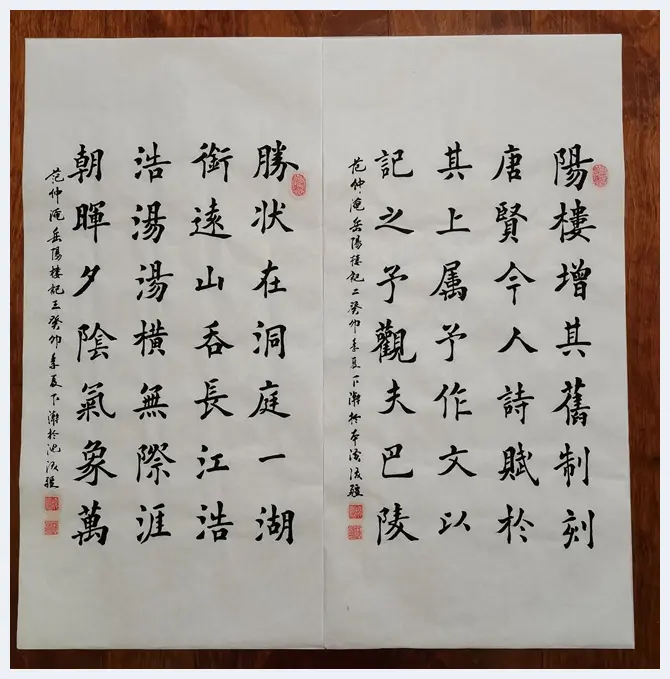 陽樓增其舊制刻
唐賢今人詩賦於
其上属予作文以
記之予觀夫巴陵
范仲淹岳陽樓記二癸卯季夏下澣於
勝状在洞庭一湖
銜遠山吞長江浩
浩湯湯橫無際涯
朝暉夕陰氣象萬
范仲淹岳陽樓記三癸卯季夏下澣於